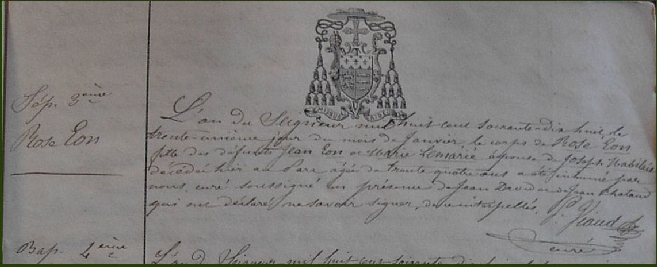 Sép. 3ème
Rose Eon
L'an du Seigneur mil huit cent soixante-dix huit, le
trente unième jour du mois de Janvier le corps de Rose Eon
fille des défunts Jean Eon et Marie épouse de Joseph
décédée hier au Parc âgée de trente quatre ans a été inhumé par
nous, curé soussigné en présence de Jean David et de Jean
qui ont déclaré ne savoir signer, de ce interpellés.
Viaud
curé
Bap. 4ème
L'an du Seigneur mil huit cent soixante dix huit